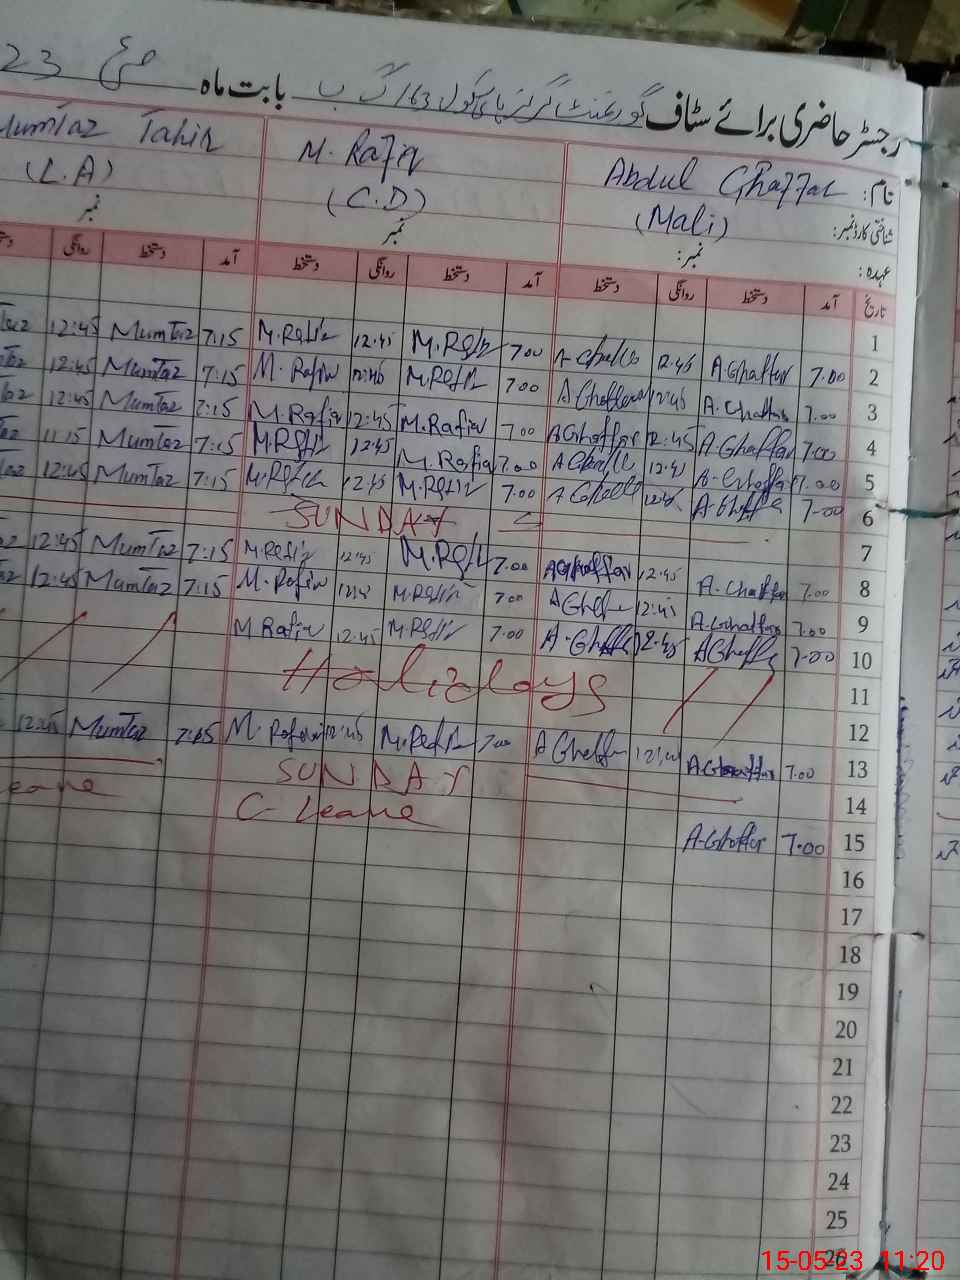 رجسٹر حاضری برائے سٹاف گورنمنٹ گرلز ہائی سکول 163 گ ب بابت ماہ مئی 23
نام: Abdul Ghaffar M. Rafiq Mumtaz Tahir
شناختی کارڈ نمبر: (Mali) (C.D) (L.A)
عہدہ: نمبر: نمبر نمبر
تاریخ آمد دستخط روانگی دستخط آمد دستخط روانگی دستخط آمد دستخط روانگی
1
2 7.00 A.Ghaffar 12.45 7.00 M.Rafiq 12.45 M.Rafiq 7:15 Mumtaz 12:45
3 7.00 A.Ghaffar 12.45 A.Ghaffar 7.00 M.Rafiq 12.45 M.Rafiq 7:15 Mumtaz 12:45
4 7.00 A.Ghaffar 12.45 A.Ghaffar 7.00 M.Rafiq 12.45 M.Rafiq 7:15 Mumtaz 12:45
5 7.00 A.Ghaffar 12.45 7.00 M.Rafiq 12.45 M.Rafiq 7:15 Mumtaz 11:15
6 7.00 A.Ghaffar 7.00 M.Rafiq 12.45 7:15 Mumtaz 12:45
7 SUNDAY
8 7.00 A.Ghaffar 12.45 A.Ghaffar 7.00 M.Rafiq 12.45 M.Rafiq 7:15 Mumtaz 12:45
9 7.00 A.Ghaffar 12.45 7.00 M.Rafiq M.Rafiq 7:15 Mumtaz 12:45
10 7.00 A.Ghaffar 12.45 A.Ghaffar 7.00 M.Rafiq 12.45 M.Rafiq
11 Holidays
12
13 7.00 A.Ghaffar A.Ghaffar 7.00 M.Rafiq 12.45 M.Rafiq 7:15 Mumtaz 12:45
14 SUNDAY
15 7.00 A.Ghaffar C-Leave
16
17
18
19
20
21
22
23
24
25
26
15-05-23 11:20